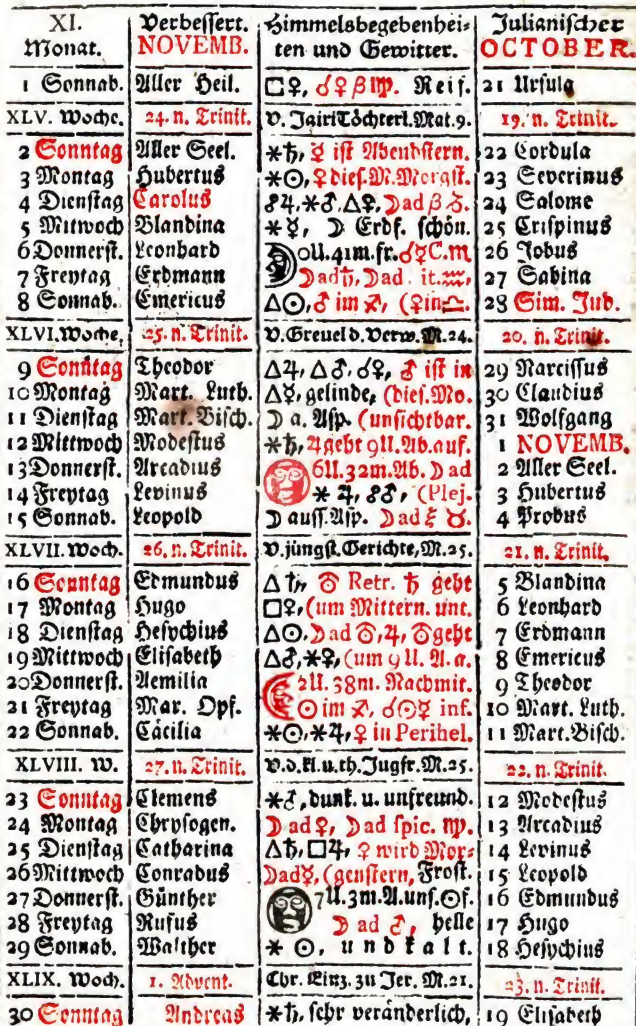 XI. Verbessert. Himmelsbegebenhei- Julianischer
Monat. NOVEMB. ten und Gewitter. OCTOBER.
1 Sonnab. Aller Heil. □♀, ☌♀β♍. Reif. 21 Ursula
XLV. Woche. 24. n. Trinit. V. Jairi Töchterl. Mat. 9. 19. n. Trinit.
2 Sonntag Aller Seel. ⚹♄, ☿ ist Abendstern. 22 Cordula
3 Montag Hubertus ⚹☉, ♀ dies. M. Morgst. 23 Severinus
4 Dienstag Carolus ☍♃, ⚹♂, △♀, ☽ ad β ♑. 24 Salome
5 Mittwoch Blandina ⚹☿, ☽ Erdf. schön. 25 Crispinus
6 Donnerst. Leonhard 0U. 41m. fr. ☌☿C.m 26 Jobus
7 Freytag Erdmann ☽ ad ♄, ☽ ad . it. ♒, 27 Sabina
8 Sonnab. Emericus △☉, ♂ im ♐, (♀ in ♎. 28 Sim. Jud.
XLVI. Woche, 25. n. Trinit. V. Greuel d. Verw. M. 24. 20. n. Trinit.
9 Sonntag Theodor △♃, △♂, ☌♀, ♂ ist in 29 Narcissus
10 Montag Mart. Luth. △☿, gelinde, (dies. Mo. 30 Claudius
11 Dienstag Mart. Bisch. ☽ a. Asp. (unsichtbar. 31 Wolfgang
12 Mittwoch Modestus ⚹♄, ♃ geht 9U. Ab. auf. 1 NOVEMB.
13 Donnerst. Arcadius 6U. 32m. Ab. ☽ ad 2 Aller Seel.
14 Freytag Levinus ⚹ ♃, ☍♂, (Plej. 3 Hubertus
15 Sonnab. Leopold ☽ auss. Asp. ☽ ad ξ ♉. 4 Probus
XLVII. Woch. 26. n. Trinit. V. jüngst. Gerichte, M. 25. 21. n. Trinit.
16 Sonntag Edmundus △ ♄, ⛢ Retr. ♄ geht 5 Blandina
17 Montag Hugo □♀, (um Mittern. unt. 6 Leonhard
18 Dienstag Hesychius △☉. ☽ ad ⛢, ♃, ⛢ geht 7 Erdmann
19 Mittwoch Elisabeth △♂, ⚹♀, (um 9 U. A. a. 8 Emericus
20 Donnerst. Aemilia 2U. 38m. Nachmit. 9 Theodor
21 Freytag Mar. Opf. ☉ im ♐, ☌☉☿ inf. 10 Mart. Luth.
22 Sonnab. Cäcilia ⚹☉, ⚹♃, ♀ in Perihel. 11 Mart. Bisch.
XLVIII. W. 27. n. Trinit. V. d. kl. u. th. Jugfr. M. 25. 22. n. Trinit.
23 Sonntag Clemens ⚹♂, dunk. u. unfreund. 12 Modestus
24 Montag Chrysogen. ☽ ad ♀, ☽ ad spic. ♍. 13 Arcadius
25 Dienstag Catharina △♄, □♃, ♀ wird Mor- 14 Levinus
26 Mittwoch Conradus ☽ ad ☿, (genstern, Frost. 15 Leopold
27 Donnerst. Günther 7U. 3m. A. uns. ☉f. 16 Edmundus
28 Freytag Rufus ☽ ad ♂, helle 17 Hugo
29 Sonnab. Walther ⚹ ☉, und kalt. 18 Hesychius
XLIX. Woch. 1. Advent. Chr. Einz. zu Jer. M. 21. 23. n. Trinit.
30 Sonntag Andreas ⚹♄, sehr veränderlich, 19 Elisabeth